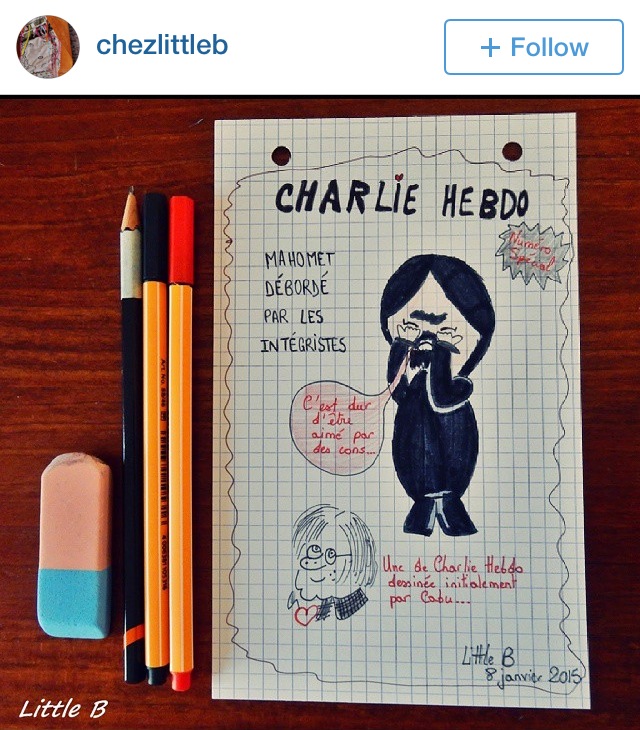 chezlittleb
+ Follow
CHARLiE HEBDO
Numéro
Spécial
MAHOMET
DÉBORDÉ
PAR LES
INTÉGRISTES
C'est dur
d'être
aimé par
des cons...
Une de Charlie Hebdo
dessinée initialement
par Cabu...
Little B
8 janvier 2015
Little B